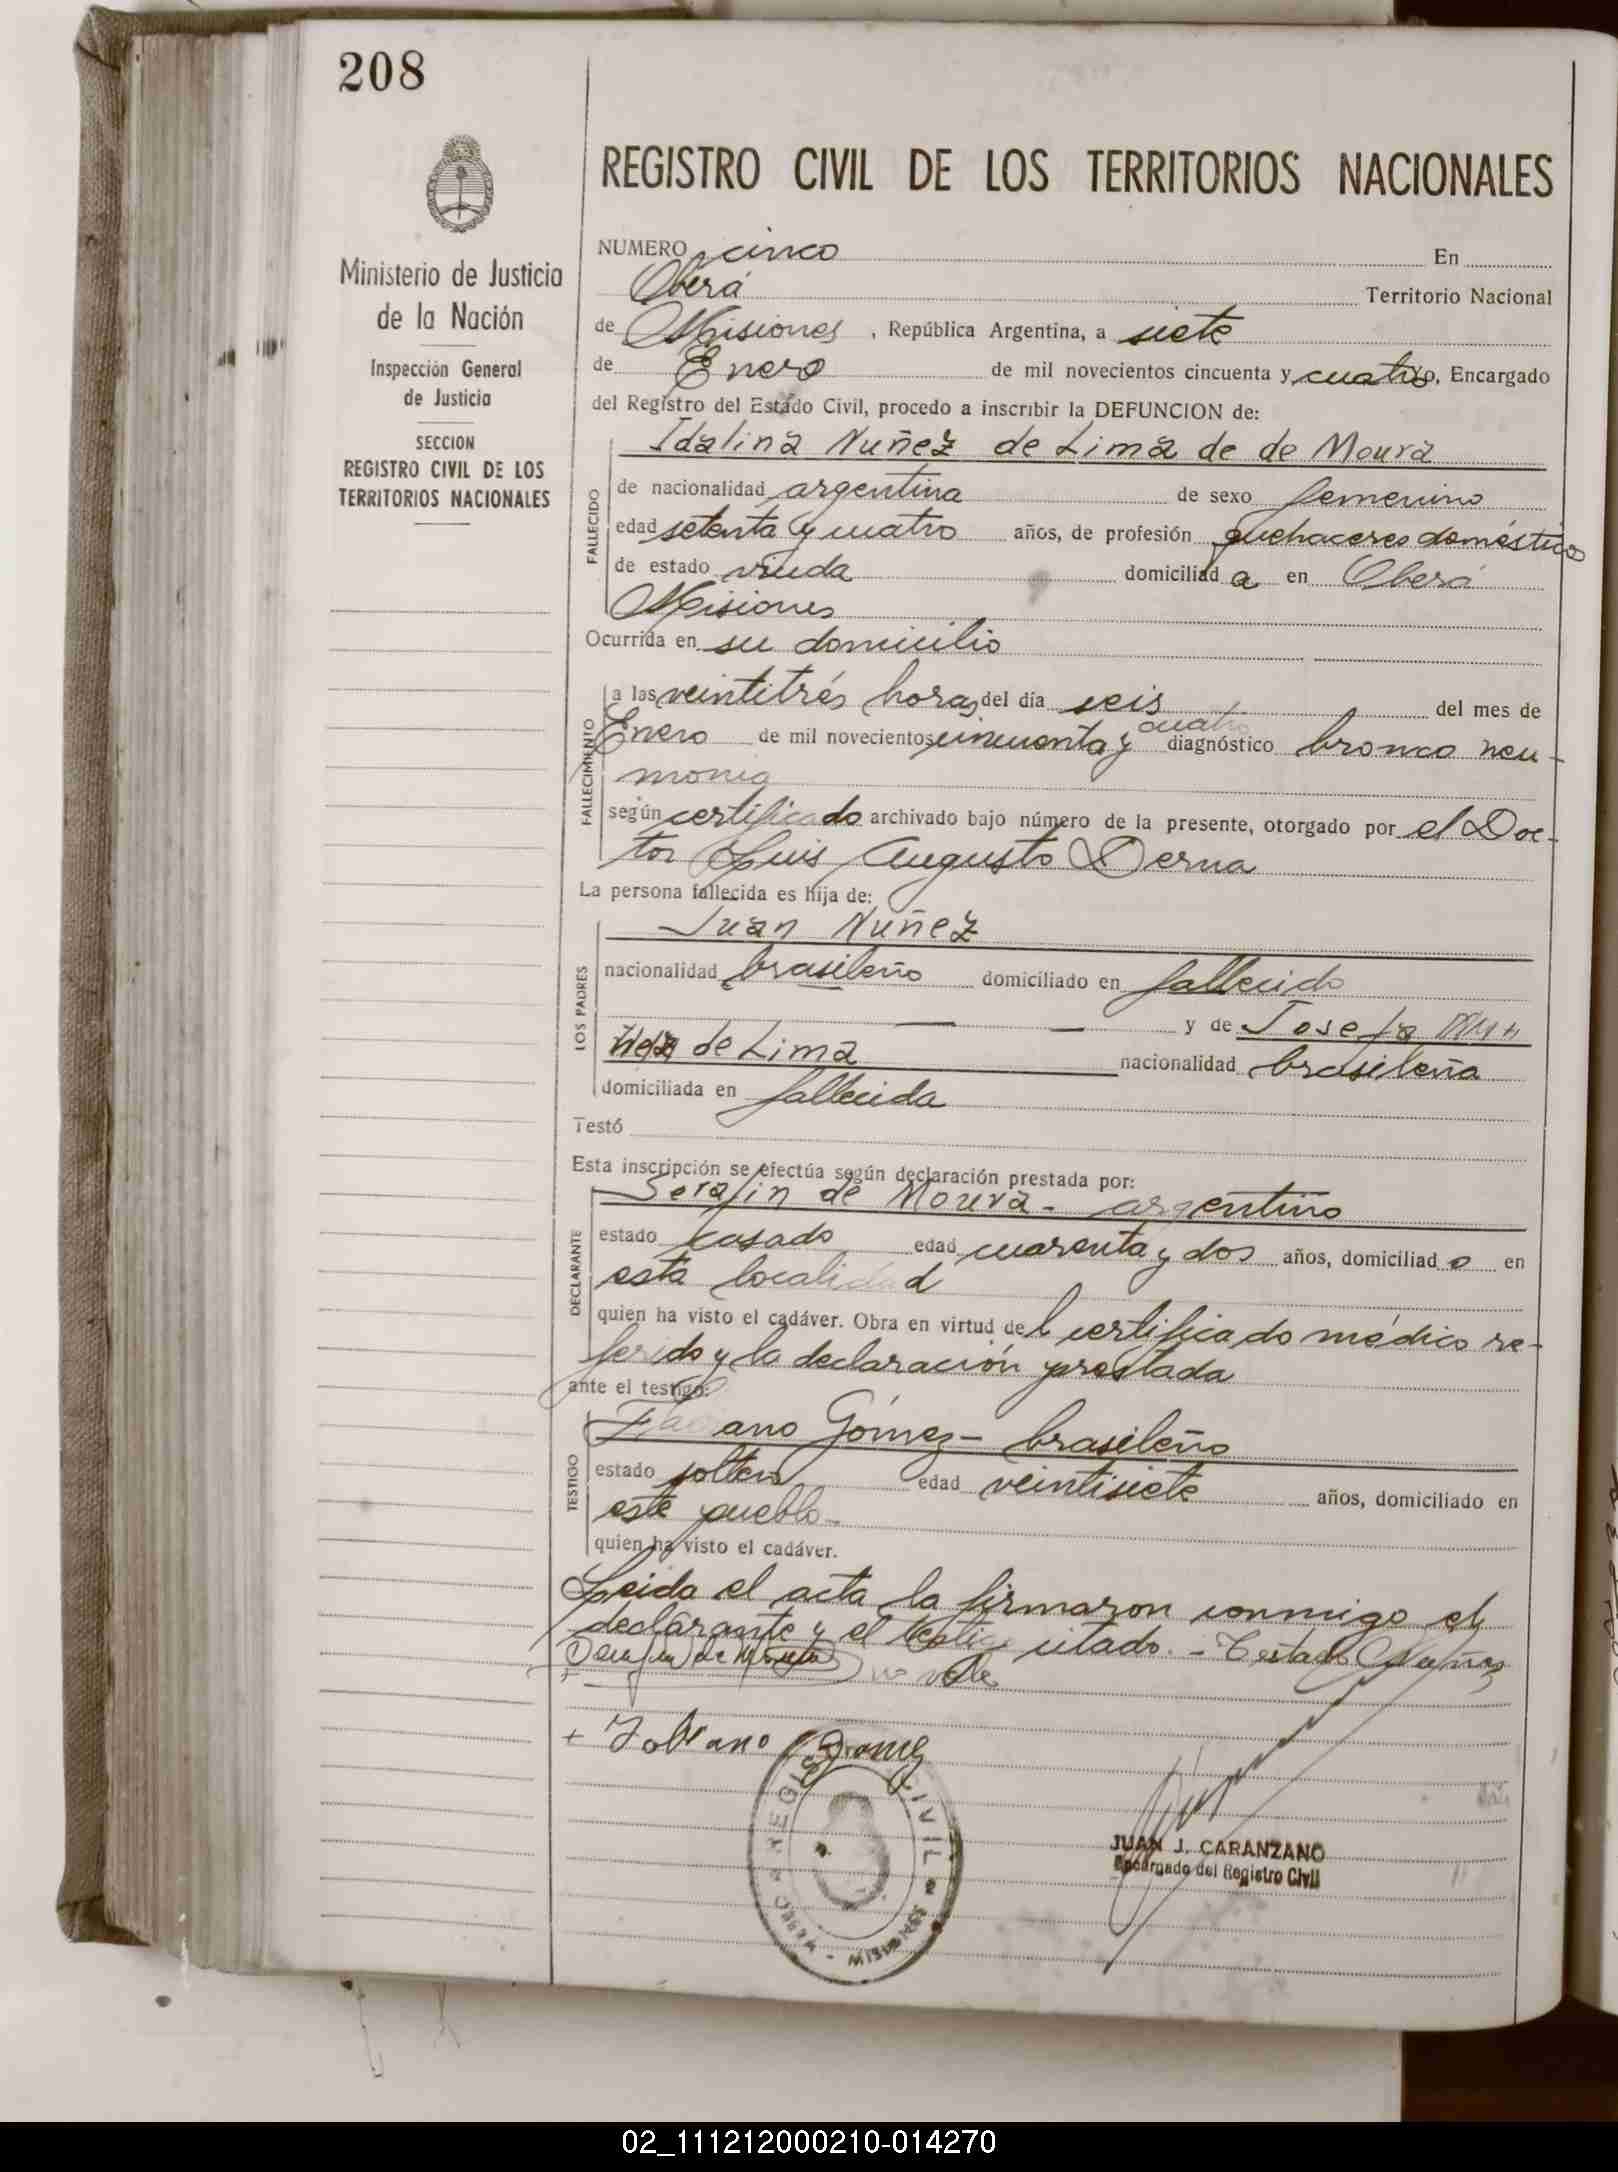 208
REGISTRO CIVIL DE LOS TERRITORIOS NACIONALES
Ministerio de Justicia
de la Nación
Inspección General
de Justicia
SECCION
REGISTRO CIVIL DE LOS
TERRITORIOS NACIONALES
NUMERO cinco En
Oberá Territorio Nacional
de Misiones, República Argentina, a siete
de Enero de mil novecientos cincuenta y cuatro, Encargado
del Registro del Estado Civil, procedo a inscribir la DEFUNCION de:
Idalina Nuñez de Lima de de Moura
FALLECIDO
de nacionalidad argentina de sexo femenino
edad setenta y cuatro años, de profesión quehaceres domésticos
de estado viuda domiciliada en Oberá
Misiones
Ocurrida en su domicilio
FALLECIMIENTO
a las veintitrés horas, del día seis del mes de
Enero de mil novecientos cincuenta y cuatro diagnóstico bronco neu-
monia
según certificado archivado bajo número de la presente, otorgado por el Doc-
tor Luis Augusto Derna
La persona fallecida es hija de:
LOS PADRES
Juan Nuñez
nacionalidad brasileño domiciliado en fallecido
— — y de Josefa
de Lima nacionalidad brasileña
domiciliada en fallecida
Testó
Esta inscripción se efectúa según declaración prestada por:
DECLARANTE
Serafin de Moura - argentino
estado casado edad cuarenta y dos años, domiciliado en
esta localidad
quien ha visto el cadáver. Obra en virtud del certificado médico re-
ferido y la declaración prestada
ante el testigo:
TESTIGO
Fabiano Gómez - brasileño
estado soltero edad veintisiete años, domiciliado en
este pueblo-
quien ha visto el cadáver.
Leida el acta la firmaron conmigo el
declarante y el testigo citado. - Testado Nuñez
Serafin de Moura no vale
+ Fobiano Gomez
REGISTRO CIVIL
OBERA - MISIONES
JUAN J. CARANZANO
Encargado del Registro Civil
02_111212000210-014270